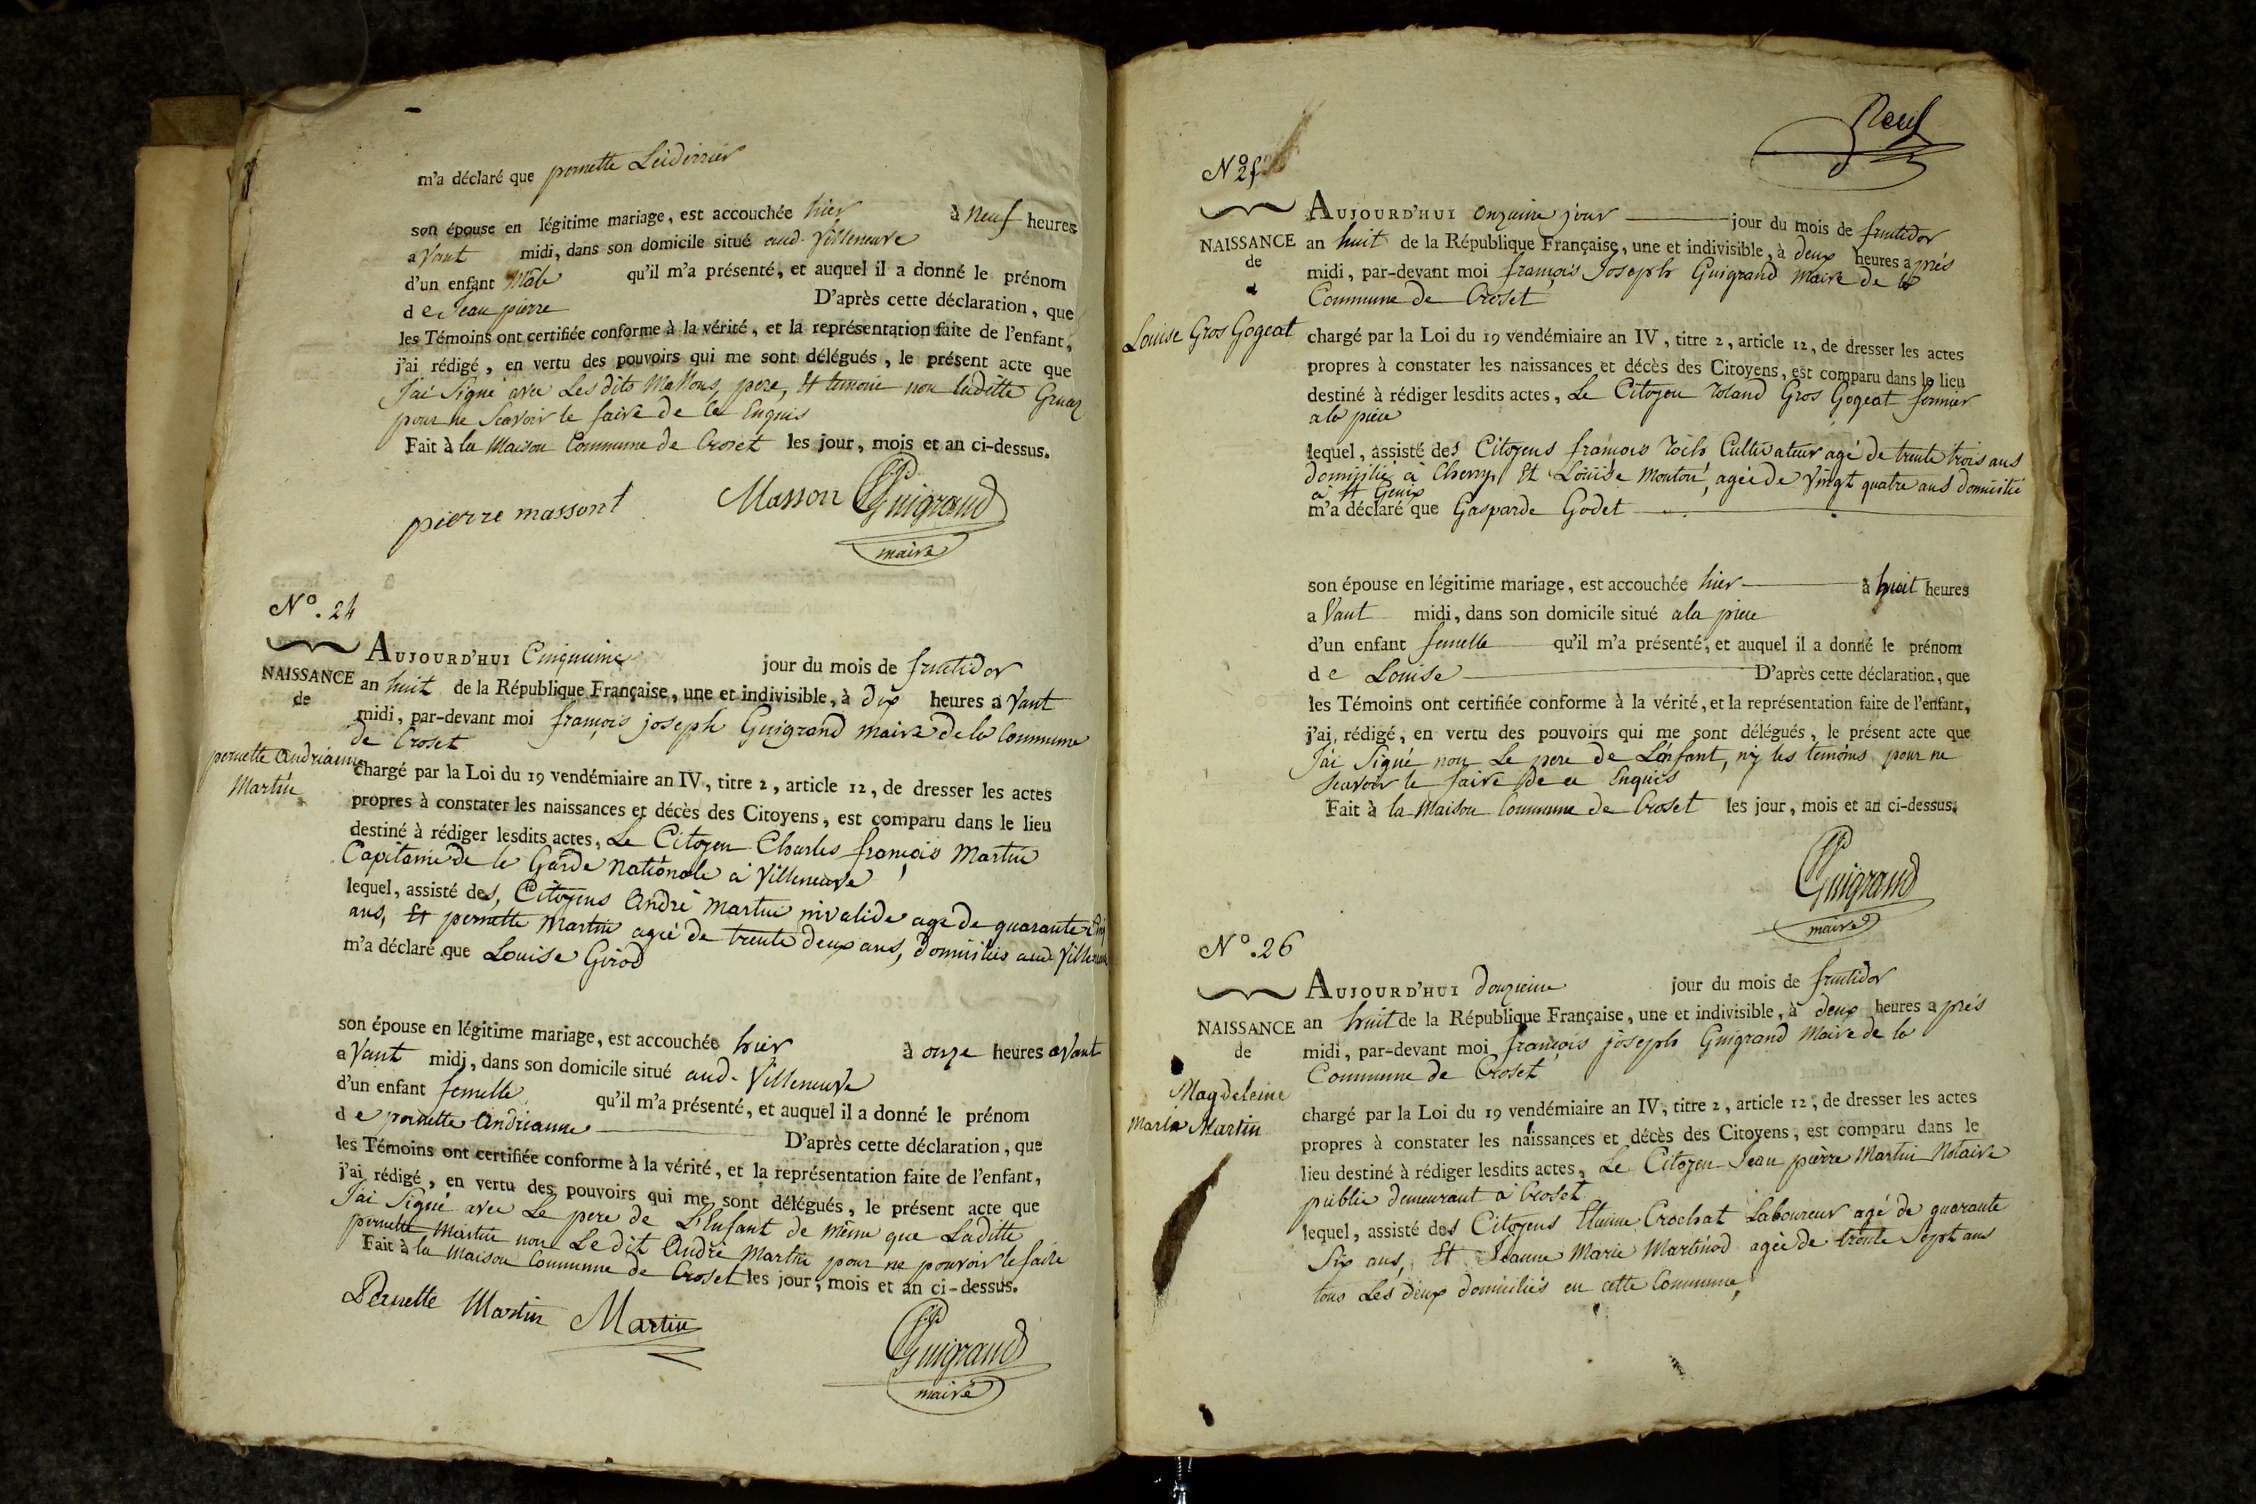 m'a déclaré que pernette Leiderrier
son épouse en légitime mariage, est accouchée hier à Neuf heures
avant midi, dans son domicile situé aud. Villeneuve
d'un enfant Male qu'il m'a présenté, et auquel il a donné le prénom
de Jean pierre D'après cette déclaration, que
les Témoins ont certifiée conforme à la vérité, et la représentation faite de l'enfant,
j'ai rédigé, en vertu des pouvoirs qui me sont délégués, le présent acte que
J'ai Signé avec Lesdits Massons, pere, Et temoin non laditte Gruaz
pour ne Scavoir le faire de ce Enquis
Fait à la Maison Commune de Croset les jour, mois et an ci-dessus.
pierre massont Masson Guigrand
maire
N°. 24
AUJOURD'HUI Cinquieme jour du mois de fructidor
NAISSANCE an huit de la République Française, une et indivisible, à dix heures avant
de midi, par-devant moi françois joseph Guigrand maire de la Commune
de Croset
pernette andrianne
Martin
chargé par la Loi du 19 vendémiaire an IV, titre 2, article 12, de dresser les actes
propres à constater les naissances et décès des Citoyens, est comparu dans le lieu
destiné à rédiger lesdits actes, Le Citoyen Charles françois Martin
Capitaine de la Garde Nationale à Villeneuve
lequel, assisté des, Citoyens André Martin invalide agé de quarante cinq
ans, Et pernette Martin agée de trente deux ans, domiciliés aud. Villeneuve
m'a déclaré que Louise Girod
son épouse en légitime mariage, est accouchée hier à onze heures avant
avant midi, dans son domicile situé aud. Villeneuve
d'un enfant femelle qu'il m'a présenté, et auquel il a donné le prénom
de pernette Andrianne D'après cette déclaration, que
les Témoins ont certifiée conforme à la vérité, et la représentation faite de l'enfant,
j'ai rédigé, en vertu des pouvoirs qui me sont délégués, le présent acte que
J'ai Signé avec Le pere de L'Enfant de même que Laditte
pernette Martin non Le dit André Martin pour ne pouvoir le faire
Fait à la Maison Commune de Croset les jour, mois et an ci-dessus.
Pernette Martin Martin Guigrand
maire
Neuf
N° 25
AUJOURD'HUI Onzieme jour jour du mois de fructidor
NAISSANCE an huit de la République Française, une et indivisible, à deux heures après
de midi, par-devant moi françois Joseph Guigrand maire de la
Commune de Croset
Louise Gros Gogeat
chargé par la Loi du 19 vendémiaire an IV, titre 2, article 12, de dresser les actes
propres à constater les naissances et décès des Citoyens, est comparu dans le lieu
destiné à rédiger lesdits actes, Le Citoyen Roland Gros Gogeat fermier
a la piece
lequel, assisté des Citoyens françois Cultivateur agé de trente trois ans
domicilié à Chevry Et Louise Moutou, agée de Vingt quatre ans domicilié
à St Genix
m'a déclaré que Gasparde Godet
son épouse en légitime mariage, est accouchée hier à huit heures
avant midi, dans son domicile situé a la piece
d'un enfant femelle qu'il m'a présenté, et auquel il a donné le prénom
de Louise D'après cette déclaration, que
les Témoins ont certifiée conforme à la vérité, et la représentation faite de l'enfant,
j'ai rédigé, en vertu des pouvoirs qui me sont délégués, le présent acte que
J'ai Signé non Le pere de L'enfant, ny les temoins pour ne
scavoir le faire de ce Enquis
Fait à la Maison Commune de Croset les jour, mois et an ci-dessus.
Guigrand
maire
N°. 26
AUJOURD'HUI douzieme jour du mois de fructidor
NAISSANCE an huit de la République Française, une et indivisible, à deux heures après
de midi, par-devant moi françois joseph Guigrand Maire de la
Commune de Croset
Magdeleine
Maria Martin
chargé par la Loi du 19 vendémiaire an IV, titre 2, article 12, de dresser les actes
propres à constater les naissances et décès des Citoyens, est comparu dans le
lieu destiné à rédiger lesdits actes, Le Citoyen Jean pierre Martin Notaire
public demeurant à Croset
lequel, assisté des Citoyens Etienne Crochat Laboureur agé de quarante
Six ans, Et Jeanne Marie Martinod agée de trente Sept ans
tous Les deux domiciliés en cette Commune,